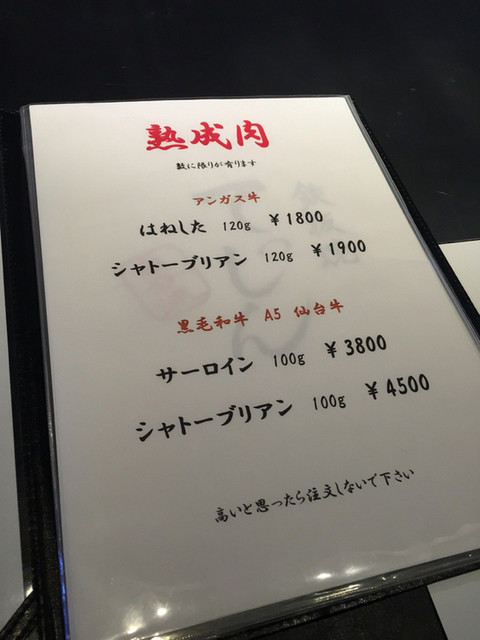 熟成肉
数に限りが有ります
アンガス牛
はねした 120g ¥1800
シャトーブリアン 120g ¥1900
黒毛和牛 A5 仙台牛
サーロイン 100g ¥3800
シャトーブリアン 100g ¥4500
高いと思ったら注文しないで下さい